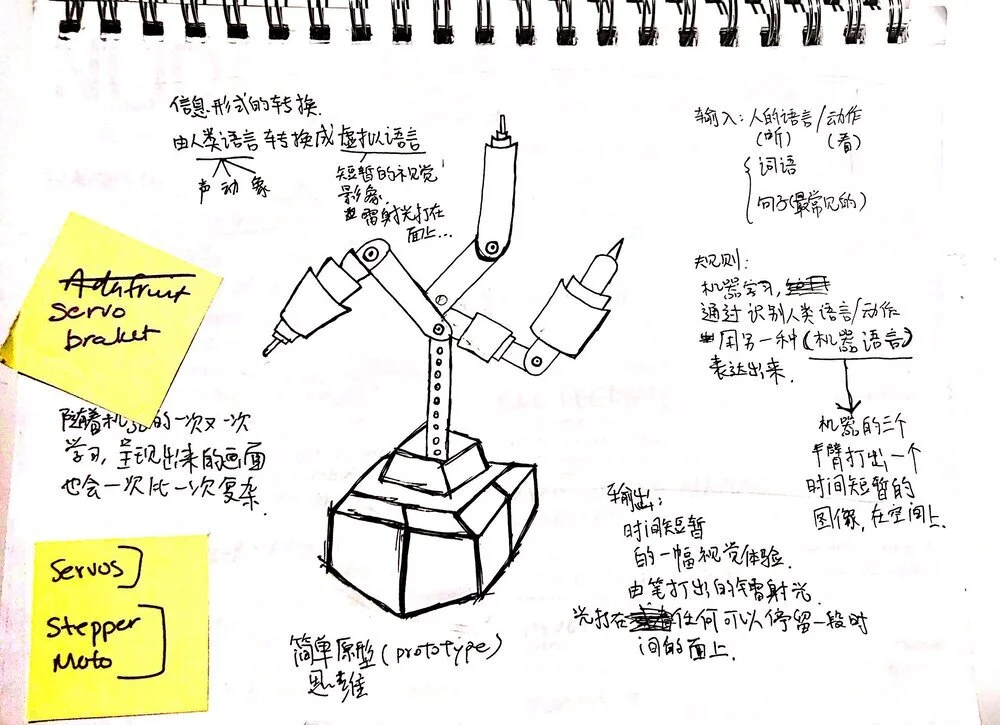 信息形式的转换.
由人类语言转换成虚拟语言
声 动 象
短暂的视觉
影象.
镭射光打在
面上...
输入: 人的语言/动作
(听) (看)
词语
句子(最常见的)
规则:
机器学习,
通过识别人类语言/动作
用另一种(机器语言)
表达出来.
机器的三个
手臂打出一个
时间短暂的
图像, 在空间上.
Adafruit
servo
braket
随着机器的一次又一次
学习, 呈现出来的画面
也会一次比一次复杂.
servos
Stepper
Moto
输出:
时间短暂
的一幅视觉体验.
由笔打出的镭射光
光打在任何可以停留一段时
间的面上.
简单原型(prototype)
思维